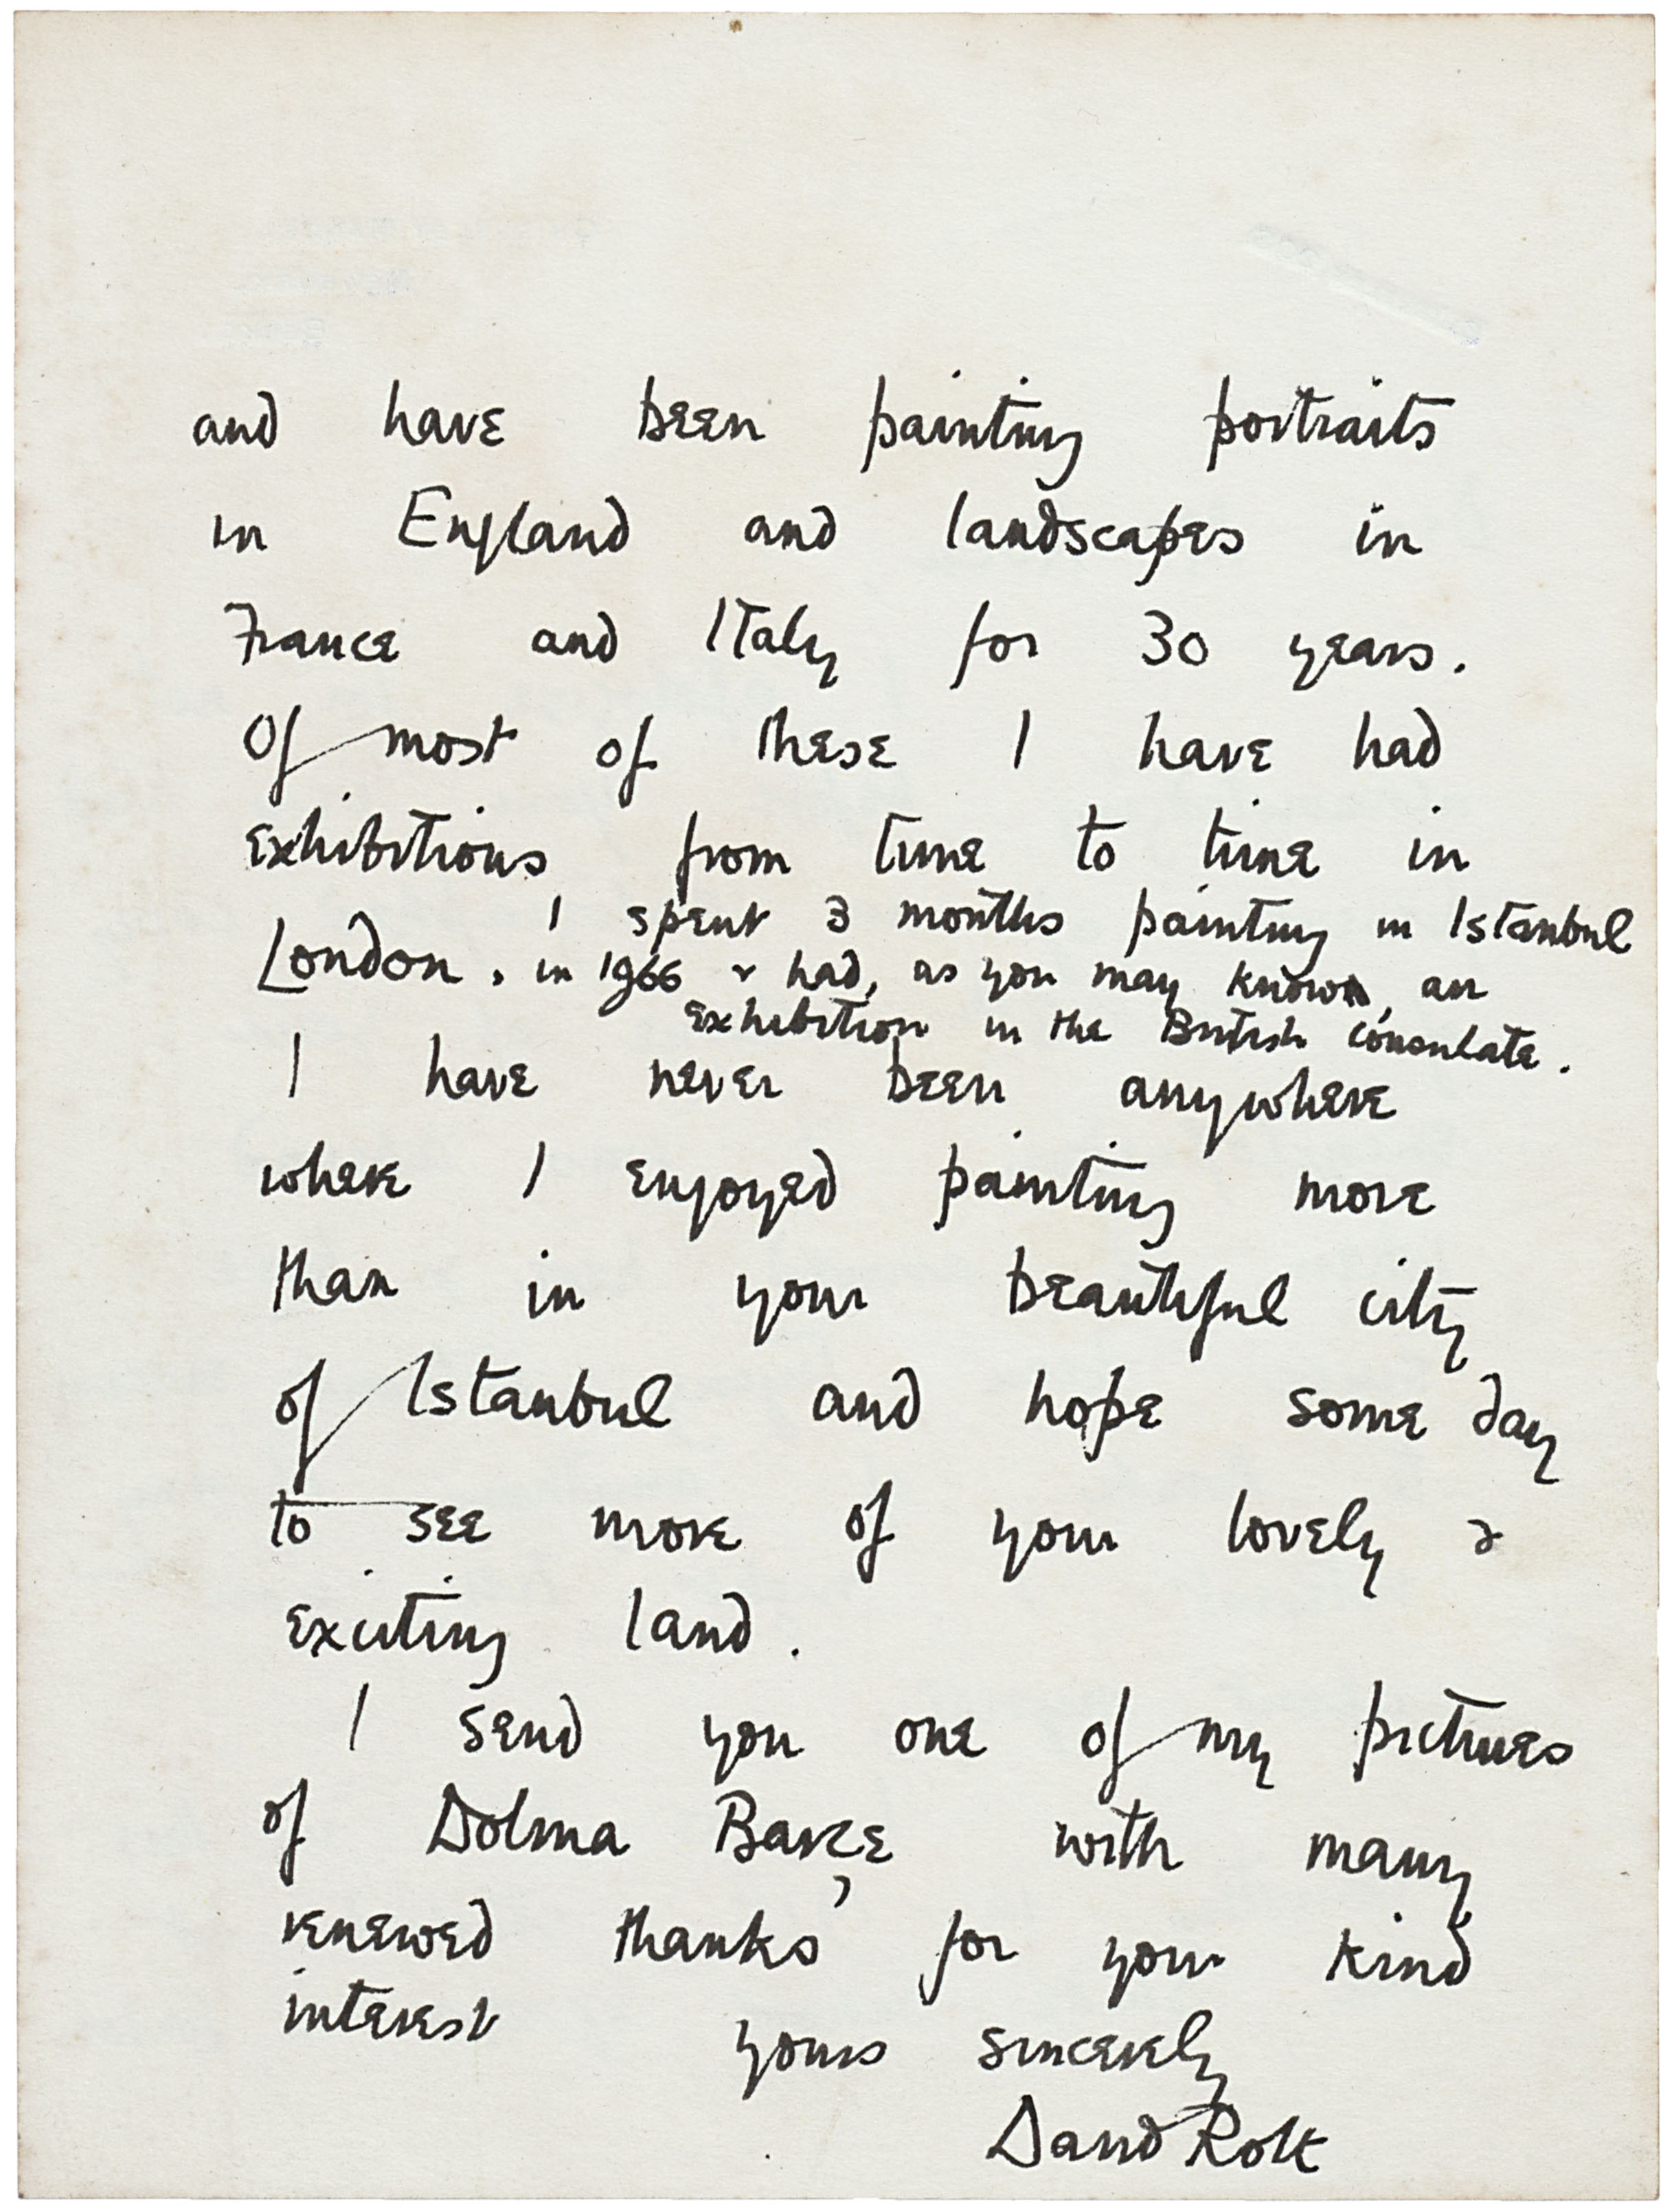 and have been painting portraits
in England and landscapes in
France and Italy for 30 years.
Of most of these I have had
exhibitions from time to time in
London. I spent 3 months painting in Istanbul
in 1966 & had, as you may know, an
exhibition in the British Consulate.
I have never been anywhere
where I enjoyed painting more
than in your beautiful city
of Istanbul and hope some day
to see more of your lovely &
exciting land.
I send you one of my pictures
of Dolma Bahçe with many
renewed thanks for your kind
interest
yours sincerely
David Rolt